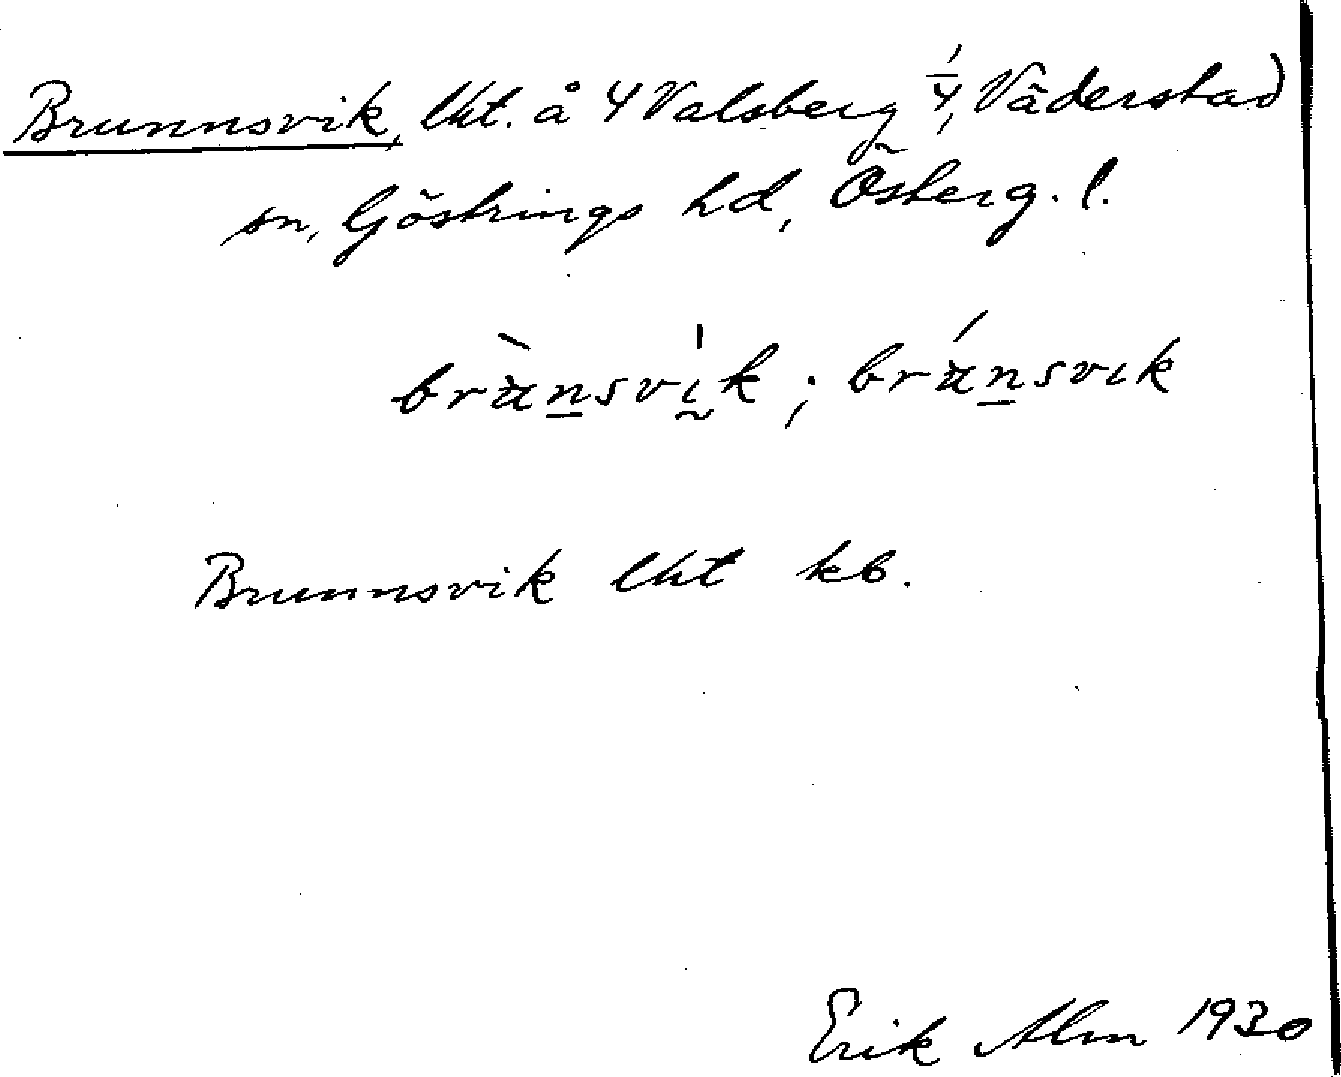 Brunnsvik, lht. å 4 Valsberg 1/4, Väderstad
sn, Göstrings hd, Österg. l.
brùnsvìk; brúnsvik
Brunnsvik lht kb.
Erik Alm 1930